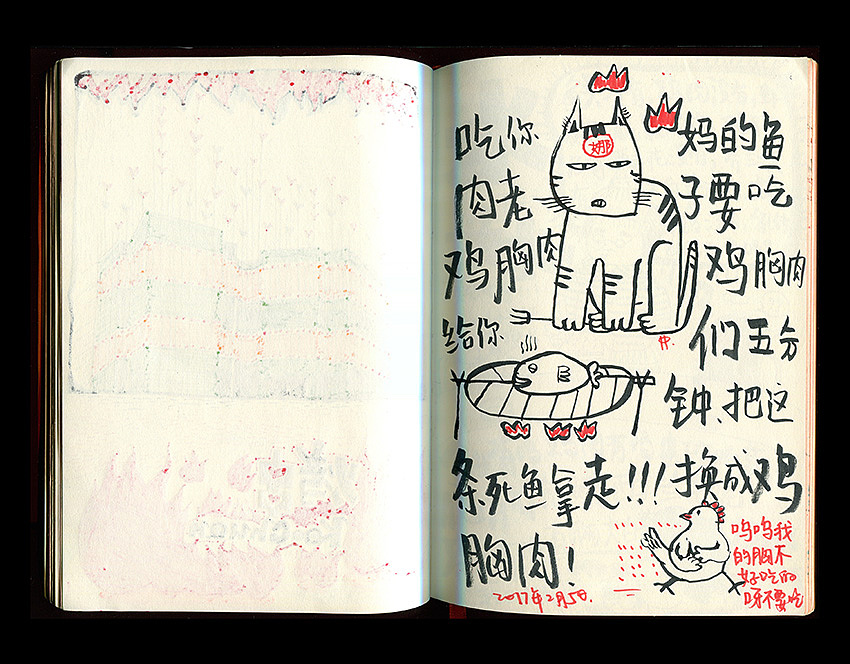 吃你 妈的鱼
肉老 子要吃
鸡胸肉 鸡胸肉
给你 们五分
钟、把这
条死鱼拿走!!!换成鸡
胸肉!
娜
呜呜我
的胸不
好吃的
呀不要吃
2017年2月5日.